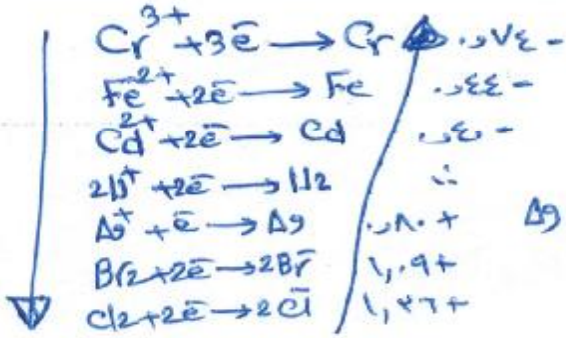 Cr³⁺ + 3e⁻ → Cr ٠,٧٤ -
Fe²⁺ + 2e⁻ → Fe ٠,٤٤ -
Cd²⁺ + 2e⁻ → Cd ٠,٤٠ -
2H⁺ + 2e⁻ → H2
Ag⁺ + e⁻ → Ag ٠,٨٠ + Ag
Br2 + 2e⁻ → 2Br⁻ ١,٠٩ +
Cl2 + 2e⁻ → 2Cl⁻ ١,٣٦ +